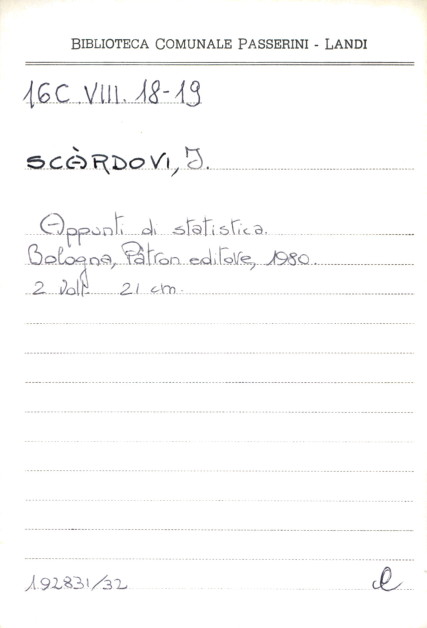 BIBLIOTECA COMUNALE PASSERINI - LANDI
16C.VIII.18-19
SCARDOVI, I.
Appunti di statistica.
Bologna, Pàtron editore, 1980.
2 voll. 21 cm.
192831/32